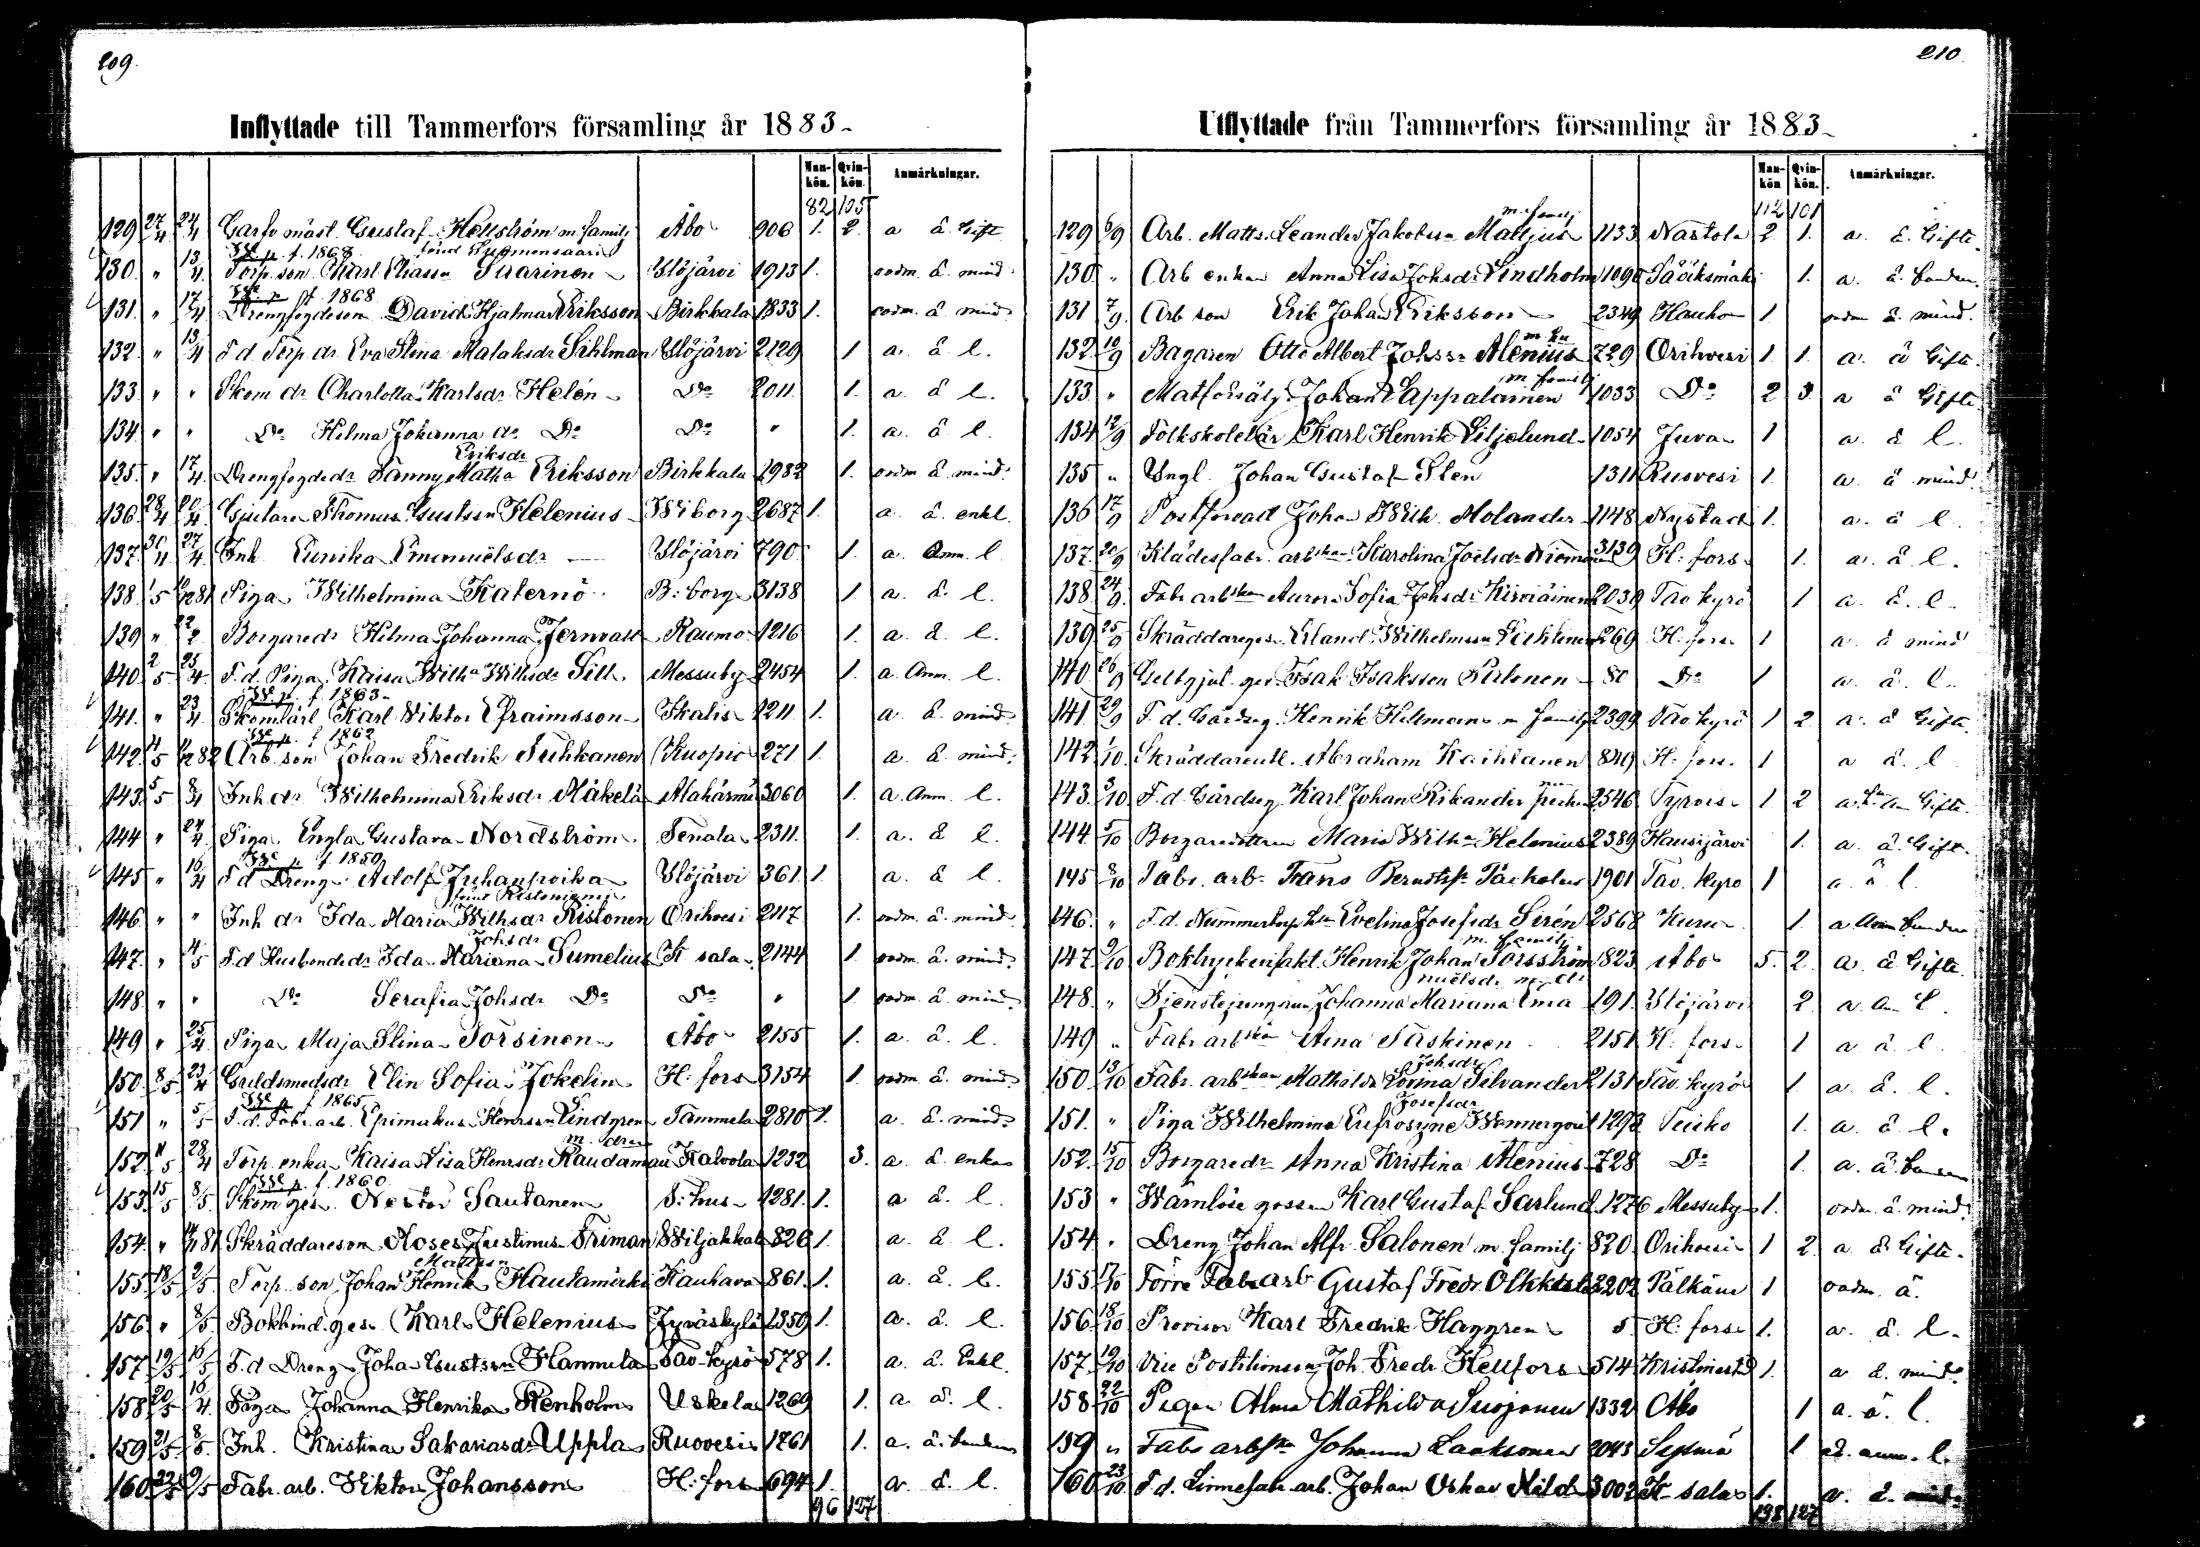 209.
Inflyttade till Tammerfors församling år 1883.
Man-kön. Qvin-kön. Anmärkningar.
82 105
129 27/4 24/4 Garfv mäst. Gustaf Hellström m. familj Åbo 906 1. 2. a å Gift
f. 1868
130. " 13/4 Torp. son Karl Saarinen Ylöjärvi 1913 1. oadm. å mind.
f. 1868
131. " 17/4 Drengfogdeson David Hjalmar Eriksson Birkkala 1833 1. oadm. å mind.
132. " 13/4 F.d. Torp. dr Eva Stina Malaksdr Sihlman Ylöjärvi 2129 1 a. å l.
133. " " Skom dr Charlotta Karlsdr Helén Do 2011 1. a. å l.
134. " " Do Hilma Johanna dr Do Do " 1. a. å l.
Eriksdr
135. " 17/4 Drengfogdedr Fanny Matha Eriksson Birkkala 1982 1. oadm å mind.
136 28/4 Gjutare Thomas Gustssn Helenius Wiborg 2687 1. a. å. enkl.
137. 30/4 27/4 Inh. Eunika Emanuelsdr — Ylöjärvi 790 1. a. Anm. l.
138. 1/5 Piga Wilhelmina Katernö B:borg 3138 1 a. å. l.
139 " Borgaredr Hilma Johanna Jernvall Raumo 1216 1. a. å. l.
140. 2/5 25/4 F.d. Piga Kaisa Wilha Wilhsdr Sill. Messuby 2454 1. a. Anm. l.
f. 1863
141. " 23/4 Skomlärl Karl Viktor Efraimsson Ikalis 1211 1. a å. mind.
f. 1862
142. 4/5 Arb. son Johan Fredrik Tuhkanen Kuopio 271 1. a. å. mind.
143. 5/5 Inh dr Wilhelmina Eriksdr Mäkelä Alahärmä 3060 1. a. Anm. l.
144 " 24/4 Piga Engla Gustava Nordström Tenala 2311 1. a. å l.
f. 1850
145 " 16/4 F d Dreng Adolf Juhanpoika Ylöjärvi 361 1 a. å l.
146 " " Inh dr Ida Maria Wilhsdr Ristonen Orihvesi 2117 1. oadm. å. mind.
Johsdr
147. " 4/5 F.d Husbondedr Ida Mariana Sumelius K sala 2144 1. oadm. å. mind.
148 " " Do Serafia Johsdr Do Do " 1. oadm. å. mind.
149 " 25/4 Piga Maja Stina Torsinen Åbo 2155 1. a. å. l.
150. 8/5 23/4 Guldsmedsdr Elin Sofia Jokelin H:fors 3154 1. oadm. å. mind.
f 1865
151 " 5/5 F.d. Fabr. arb. Epimakus Henrssn Lindgren Tammela 2810 1. a. å. mind.
152. 11/5 28/4 Torp. enka Kaisa Lisa Henrsdr Raudamaa Kalvola 1232 3. a. å. enka
f. 1860
153. 15/5 8/5 Skom ges. Nestor Sautanen T:hus 1281 1. a å. l.
154. " Skräddareson Moses Justinus Friman Wiljakkala 826 1. a. å l.
Mattsson
155 18/5 2/5 Torp. son Johan Henrik Hautamäki Kauhava 861. 1. a. å. l.
156 " 8/5 Bokbind. ges. Karl Helenius Jyväskylä 1359 1. a. å. l.
157 19/5 16/5 F.d Dreng Joha Gustssn Hannula Tav-kyrö 578 1. a. å. Enkl.
158 20/5 16/4 Piga Johanna Henrika Renholm Uskela 1269 1. a å. l.
159 21/5 8/5 Inh. Kristina Sakariasdr Uppla Ruovesi 1761 1. a. å. bunden
160 22/5 9/5 Fabr. arb. Viktor Johansson H:fors 694 1. a å. l.
96 127
210.
Utflyttade från Tammerfors församling år 1883.
Man-kön Qvin-kön. Anmärkningar.
112 101
m. familj
129 6/9 Arb. Matts Leander Jakobssn Mattjus 1133 Nastola 2 1. a. å. Gifte.
130. " Arb enkan Anna Lisa Johsdr Lindholm 1090 Sääksmäki 1. a. å. bunden.
131 7/9. Arb son Erik Johan Eriksson 2349 Hauho 1 oadm å. mind.
m hu
132. 10/9 Bagaren Otto Albert Johssn Alenius 729 Orihvesi 1. 1. a. å Gifte.
m familj
133. " Matförsälj. Johan Lappalainen 1033 Do 2 3 a å Gifte
134 12/9 Folkskolelär Karl Henrik Liljelund 1054 Juva 1 a. å l.
135 " Yngl. Johan Gustaf Sten 1311 Ruovesi 1. a. å mind.
136 17/9 Postforvalt Johan Wilh. Molander 1148 Nystad 1. a. å l.
137. 20/9 Klädesfabr. arbskan Karolina Joelsdr 3139 H:fors 1. a. å l.
138. 24/9. Fabr arbskan Aurora Sofia Johsdr 2030 Tav kyrö 1 a. å. l.
139 25/9 Skräddareges. Erland Wilhelmssn 269 H:fors 1 a. å mind
140 26/9 Gelbgjut. ges Isak Isaksson Salonen 80 Do 1 a. å. l.
141. 29/9 F.d. Gårdseg. Henrik Hellman m familj 2399 Tav kyrö 1 2 a. å Gifte
142. 1/10. Skräddare Abraham Kaihlanen 849 H. fors. 1 a å. l
143. 3/10 F.d. Gårdseg. Karl Johan Rikander 2546 Tyrvis 1 2 a. Gifte.
144 5/10 Borgare Maria Wilha Helenius 2389 Hausijärvi 1. a. å. Gift.
145 8/10 Fabr. arb. Frans 1901 Tav. kyro 1 a. å l.
146. " F.d. Evelina Josefsdr Sirén 2568 Kuru 1. a Anm bunden
m. familj
147. 9/10 Boktryckerifakt. Henrik Johan Forsström 823 Åbo 5. 2. a. å Gifte.
148. " Tjenstejungfrun Johanna Mariana 191. Ylöjärvi 2. a. Anm l.
149 " Fabr arbskan Aina Taskinen 2151 H. fors. 1 a å. l.
Johsdr
150. 13/10 Fabr. arbskan Mathilda Lovisa Silvander 2131 Tav. kyrö 1 a. å. l.
Josefsdr
151. " Piga Wilhelmina Eufrosyne Wennergvist 1293 Teisko 1. a. å l.
152. 15/10 Borgaredr Anna Kristina Alenius 728 Do 1. a. å bunden
153 " Wärnlöse gossen Karl Gustaf Sarlund 1276 Messuby 1. oadm. å mind.
154 " Dreng Johan Alfr. Salonen m. familj 820 Orihvesi 1 2. a å Gifte.
155 17/10 Förre Fabr arb Gustaf Fredr 3202 Pälkäne 1 oadm. å.
156 18/10 Provisor Karl Fredrik Haggren 5 H:fors 1. a. å. l.
157. 19/10 Vice Postiljonen Joh. Fredr Hellfors 514 Kristinestad 1. a å. mind.
158 22/10 Pigan Alma Mathilda 1332 Åbo 1 a. å. l.
159 " Fabr arbska Johanna Laaksonen 2043 Sysmä 1 anm. l.
160 23/10 F.d. Linnefabr. arb. Johan Oskar 3002 K-sala 1. a. å. mind.
138 127